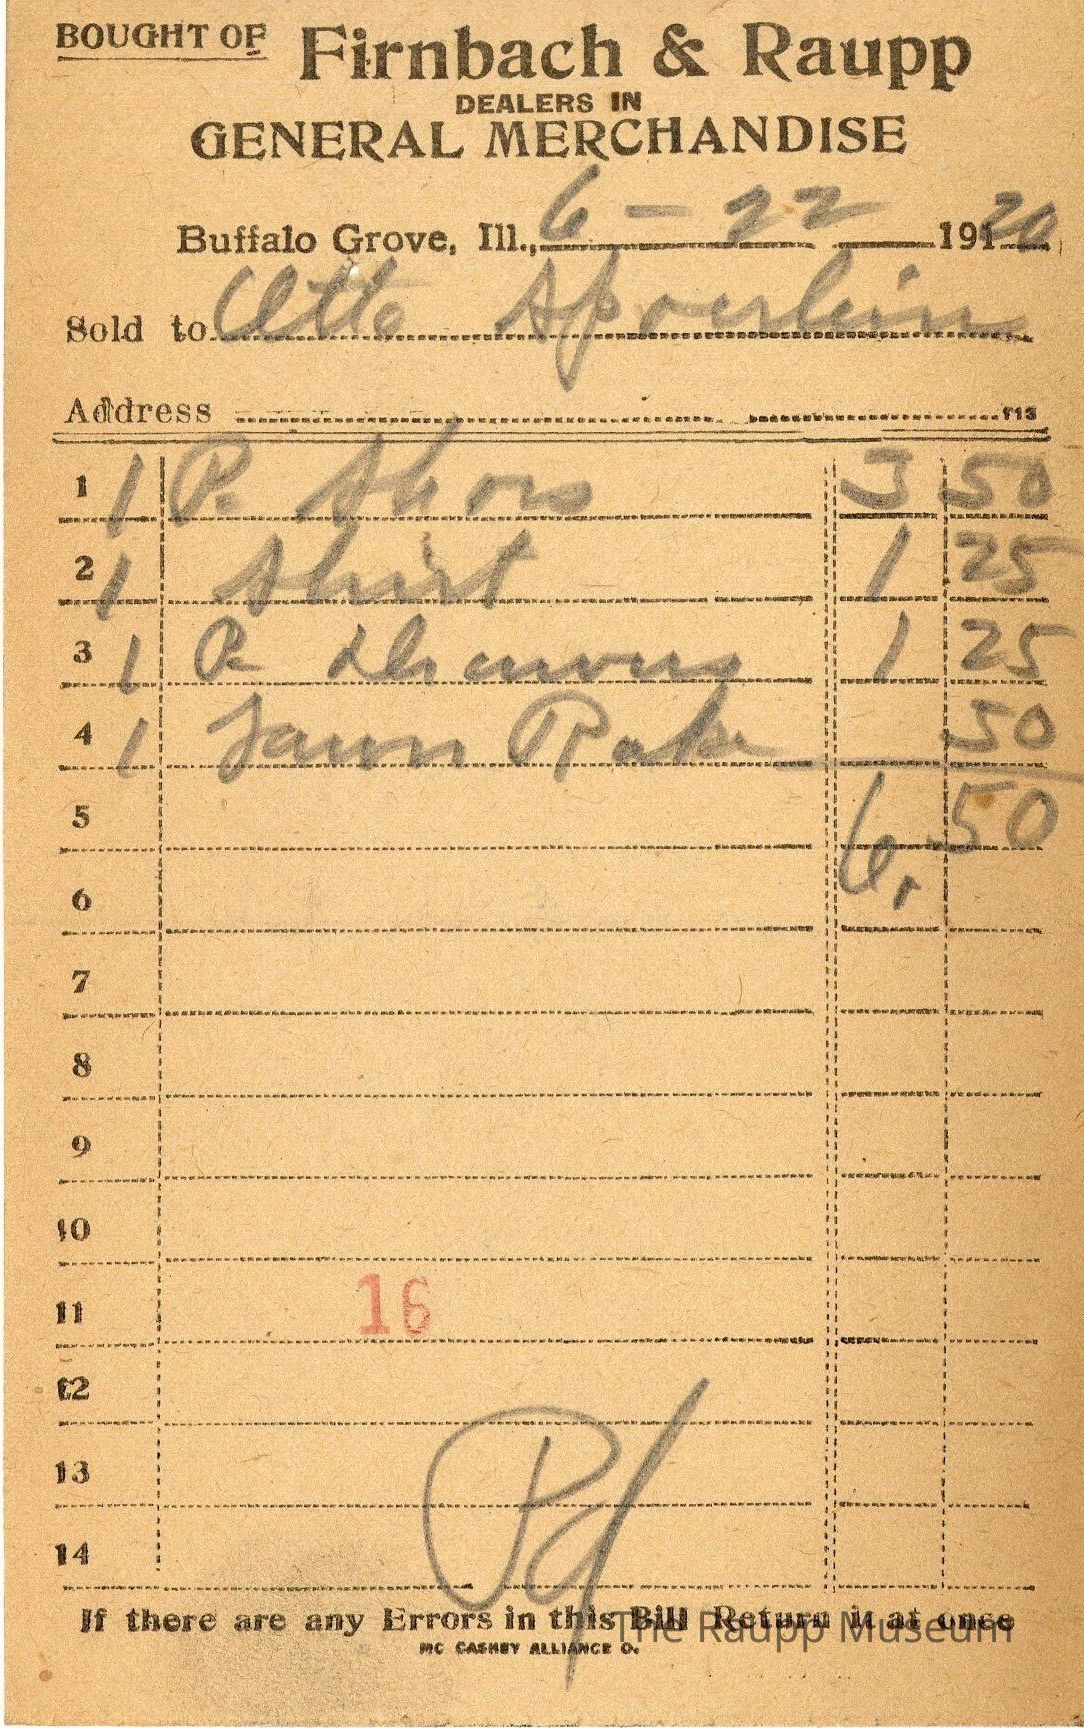 BOUGHT OF Firnbach & Raupp
DEALERS IN
GENERAL MERCHANDISE
Buffalo Grove, Ill., 6 - 22 1920
Sold to Otto Spoerlein
Address F13
1 1 P. Shoes 3 50
2 1 Shirt 1 25
3 1 P. 1 25
4 1 Lawn Rake 50
5 6.50
6
7
8
9
10
11 16
12
13
14
Pd
If there are any Errors in this Bill Return it at once
The Raupp Museum
MC CASKEY ALLIANCE O.